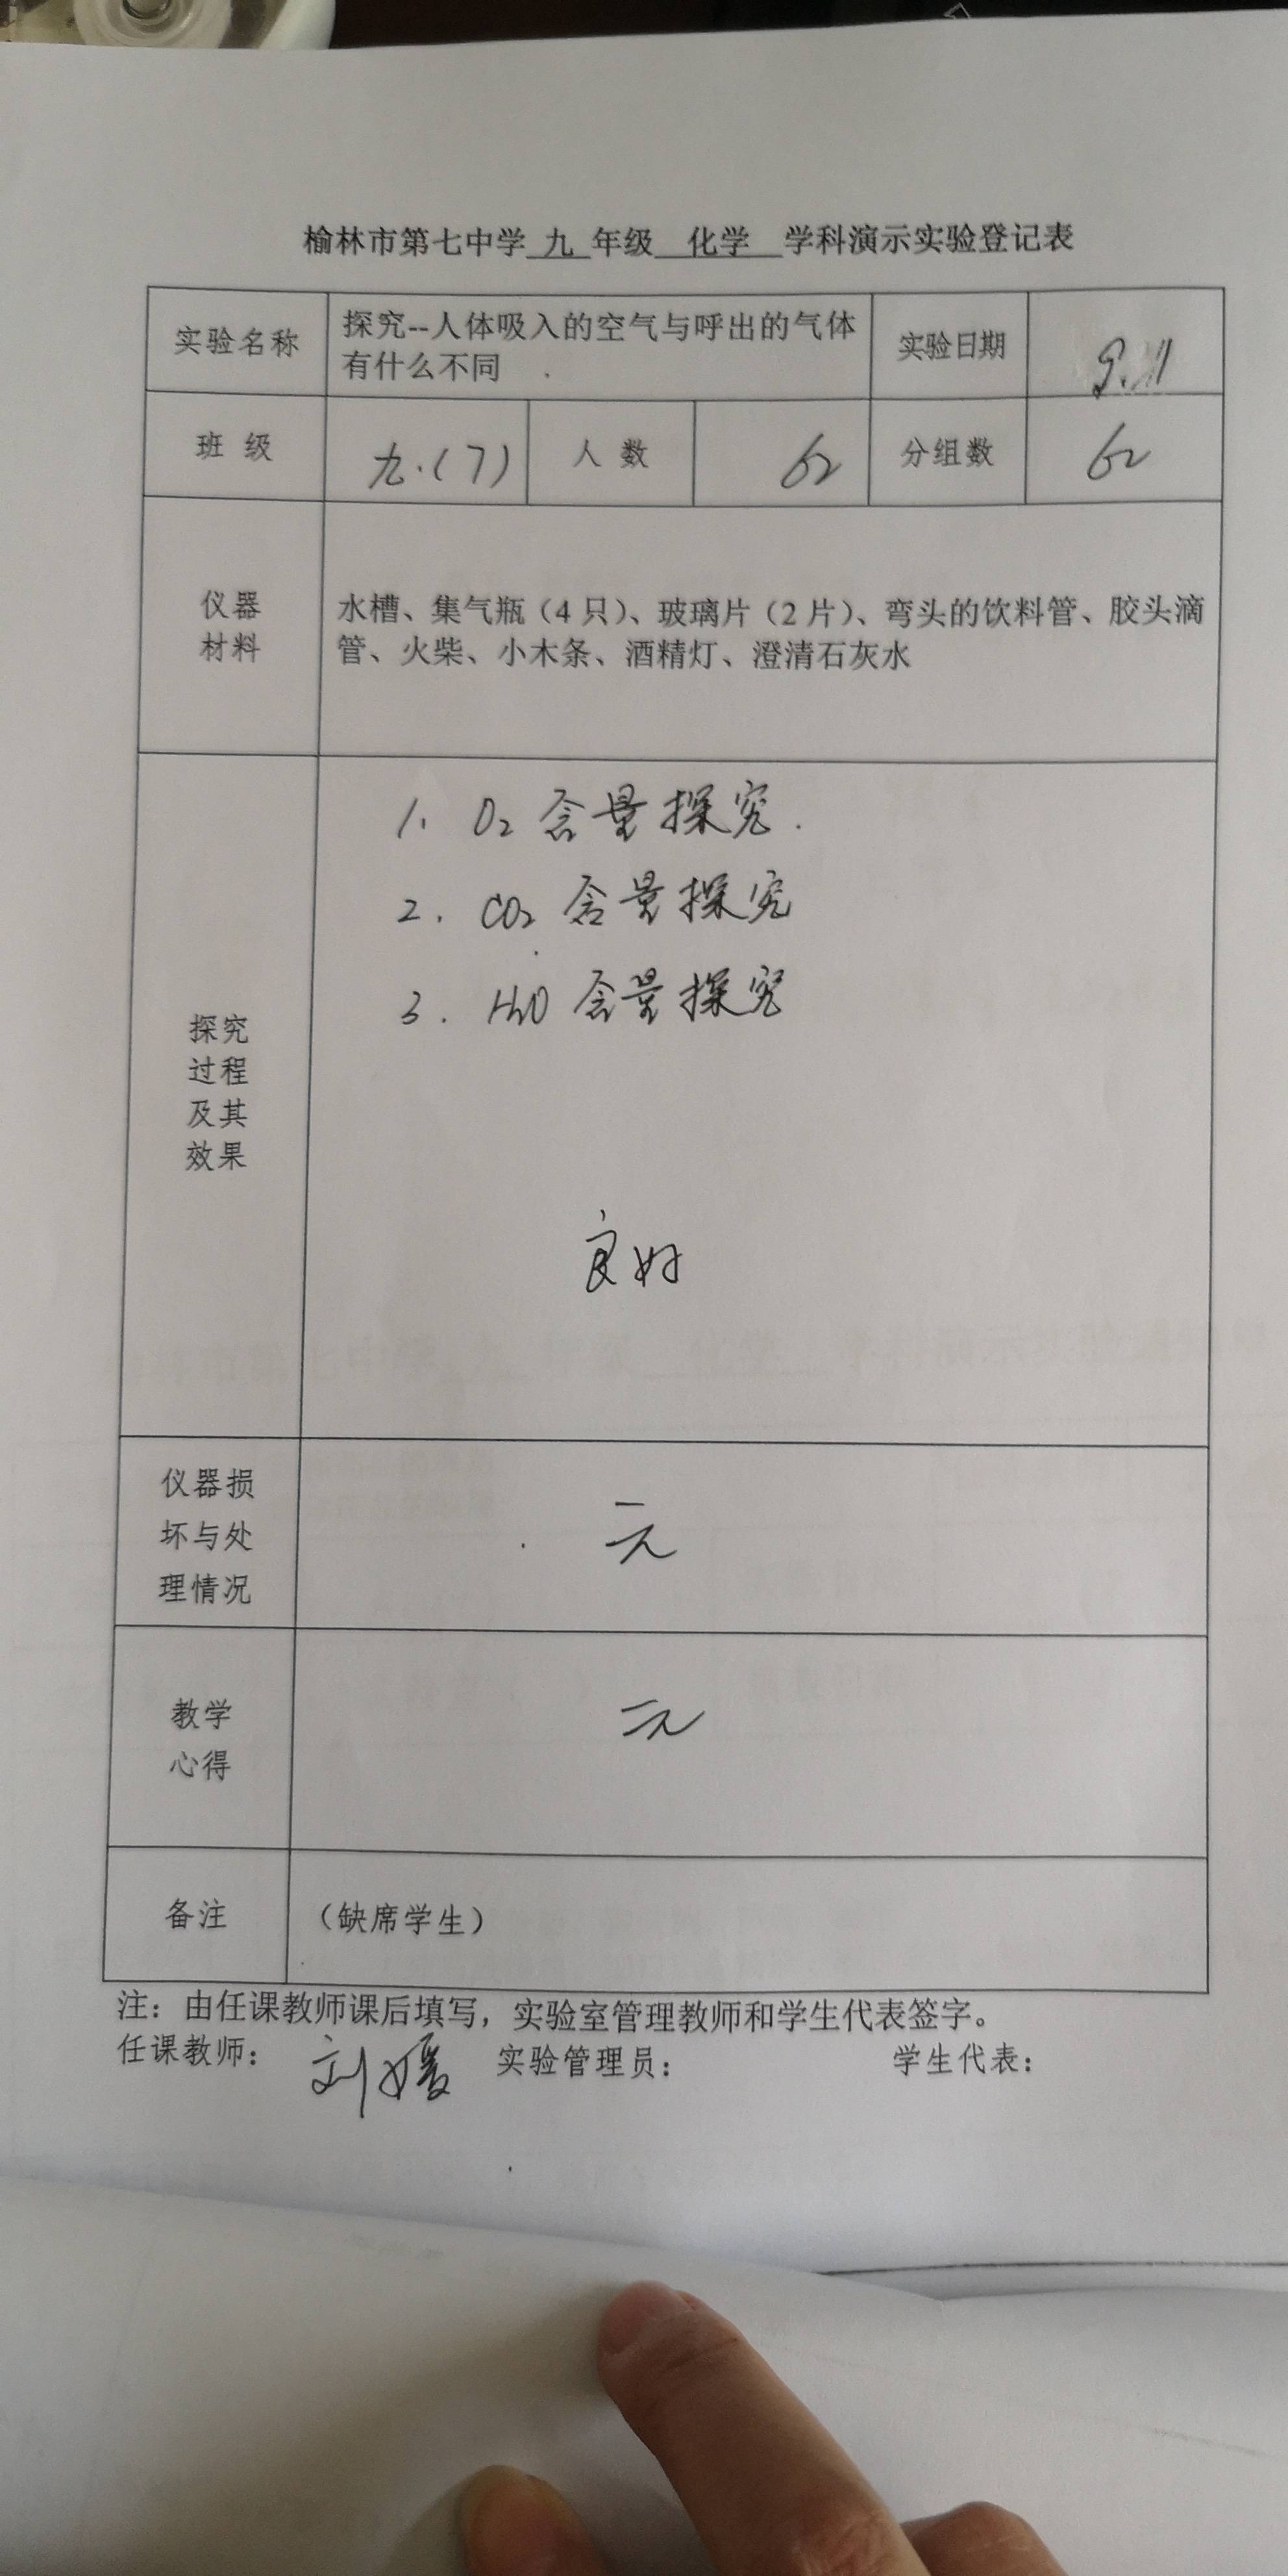 榆林市第七中学 九 年级 化学 学科演示实验登记表
实验名称
探究--人体吸入的空气与呼出的气体
有什么不同
实验日期
9.11
班 级
九.(7)
人 数
62
分组数
62
仪器
材料
水槽、集气瓶（4 只）、玻璃片（2 片）、弯头的饮料管、胶头滴
管、火柴、小木条、酒精灯、澄清石灰水
探究
过程
及其
效果
1. O₂ 含量探究.
2. CO₂ 含量探究
3. H₂O 含量探究
良好
仪器损
坏与处
理情况
无
教学
心得
无
备注
（缺席学生）
注：由任课教师课后填写，实验室管理教师和学生代表签字。
任课教师： 刘媛 实验管理员： 学生代表：